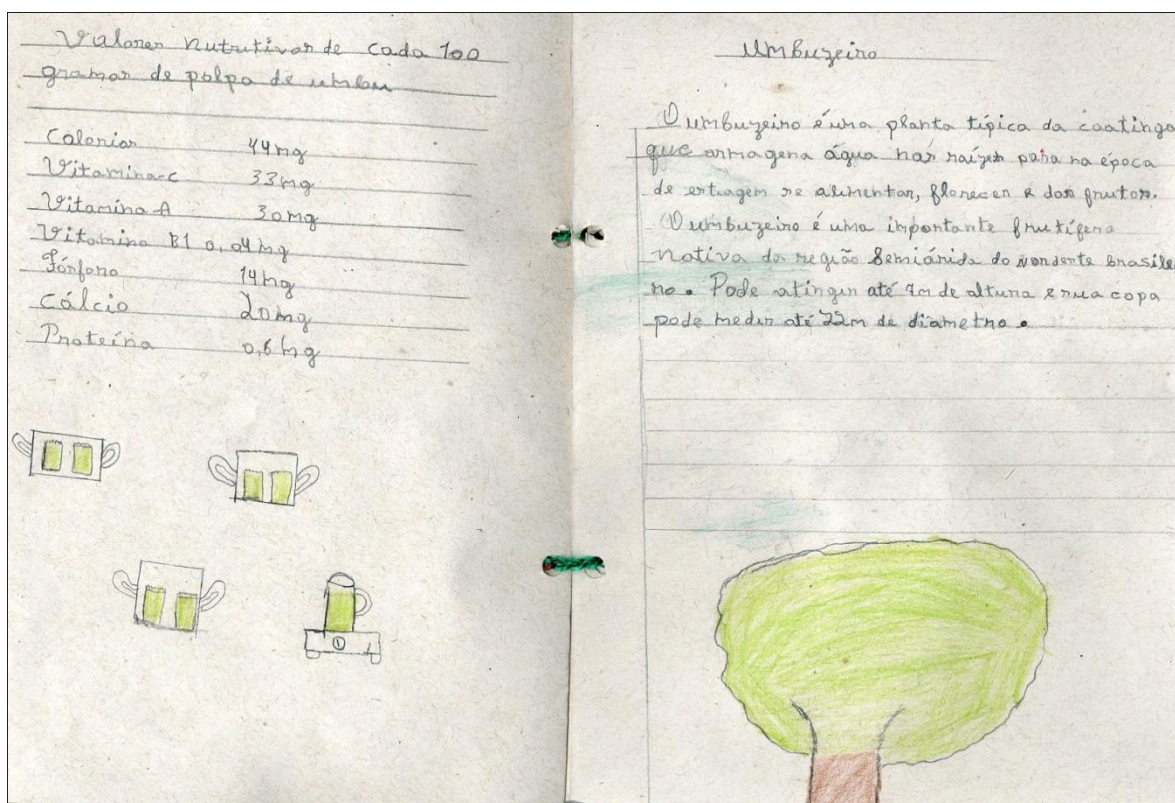 Valores nutritivos de cada 100
gramas de polpa de umbu
Calorias 44mg
Vitamina-c 33mg
Vitamina A 30mg
Vitamina B1 0,04mg
Fósforo 14mg
Cálcio 20mg
Proteína 0,6mg
Umbuzeiro
O umbuzeiro é uma planta típica da caatinga
que armagena água nas raízes para na época
de estiagem se alimentar, florecer e dar frutos.
O umbuzeiro é uma importante frutífera
nativa da região Semiárida do nordeste brasile
ro. Pode atingir até 7m de altura e sua copa
pode medir até 22m de diametro.